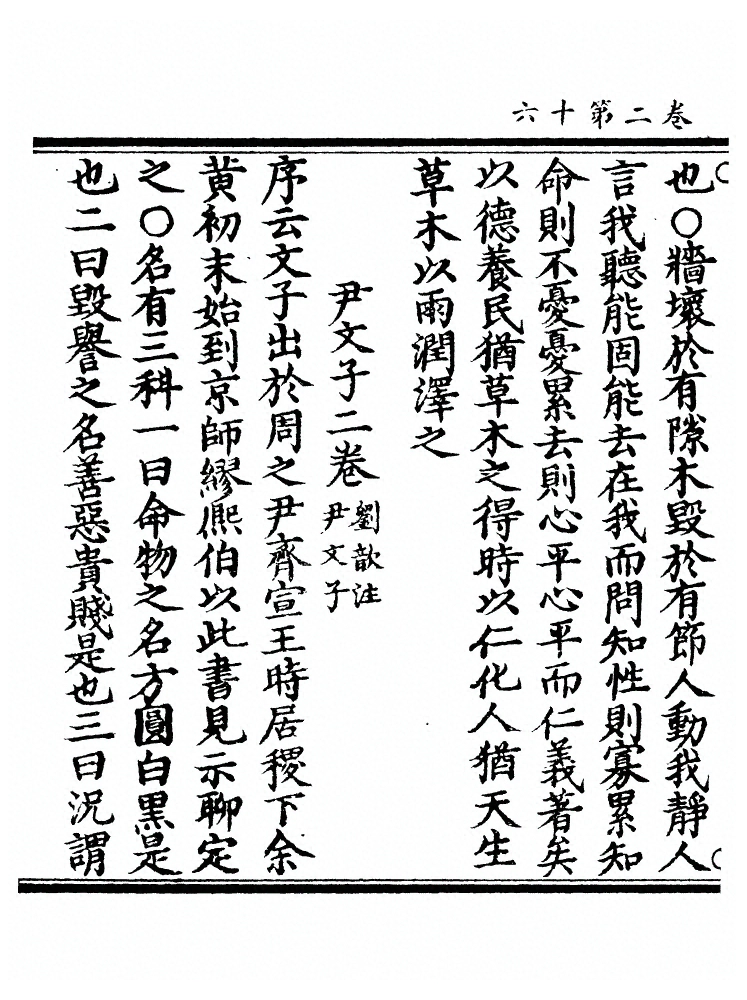 卷二第十六
也〇牆壞於有隙木毀於有節人動我靜人
言我聽能固能去在我而問知性則寡累知
命則不憂憂累去則心平心平而仁義著矣
以德養民猶草木之得時以仁化人猶天生
草木以雨潤澤之
尹文子二卷
劉歆注
尹文子
序云文子出於周之尹齊宣王時居稷下余
黃初末始到京師繆熙伯以此書見示聊定
之〇名有三科一曰命物之名方圓白黑是
也二曰毀譽之名善惡貴賤是也三曰況謂